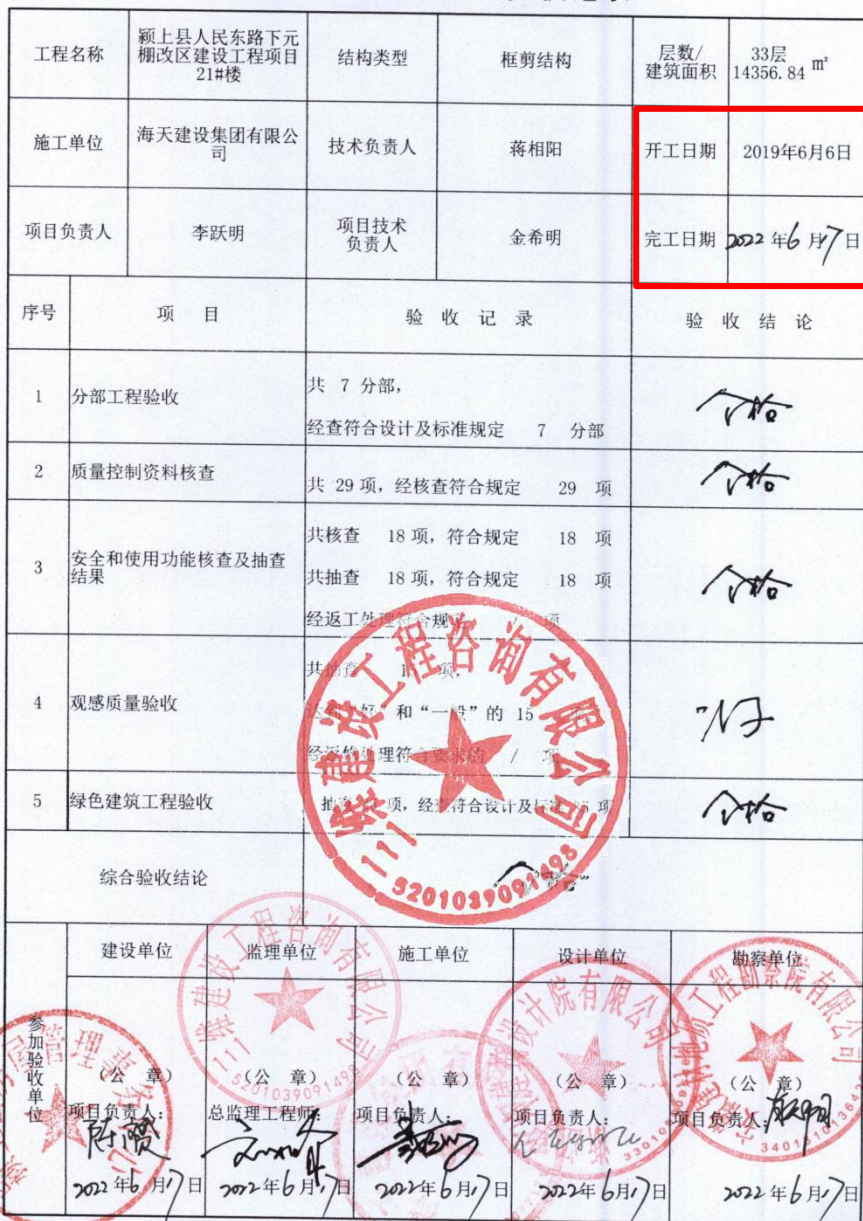 工程名称
颍上县人民东路下元
棚改区建设工程项目
21#楼
结构类型
框剪结构
层数/
建筑面积
33层
14356.84 m²
施工单位
海天建设集团有限公
司
技术负责人
蒋相阳
开工日期
2019年6月6日
项目负责人
李跃明
项目技术
负责人
金希明
完工日期
2022年6月17日
序号
项 目
验 收 记 录
验 收 结 论
1
分部工程验收
共 7 分部,
经查符合设计及标准规定 7 分部
合格
2
质量控制资料核查
共 29 项, 经核查符合规定 29 项
合格
3
安全和使用功能核查及抽查
结果
共核查 18 项, 符合规定 18 项
共抽查 18 项, 符合规定 18 项
经返工处理符合规定 / 项
合格
4
观感质量验收
共抽查 项,
达到“好”和“一般”的 15
经返修处理符合要求的 / 项
好
5
绿色建筑工程验收
项, 经查符合设计及标准 项
合格
综合验收结论
合格
建设工程咨询有限公司
5201039091498
参加验收单位
建设单位
监理单位
施工单位
设计单位
勘察单位
建设工程咨询有限公司
5201039091498
设计院有限公司
工程勘察院有限公司
管理事务
(公 章)
(公 章)
(公 章)
(公 章)
(公 章)
项目负责人:
总监理工程师:
项目负责人:
项目负责人:
项目负责人:
2022年6月17日
2022年6月17日
2022年6月17日
2022年6月17日
2022年6月17日